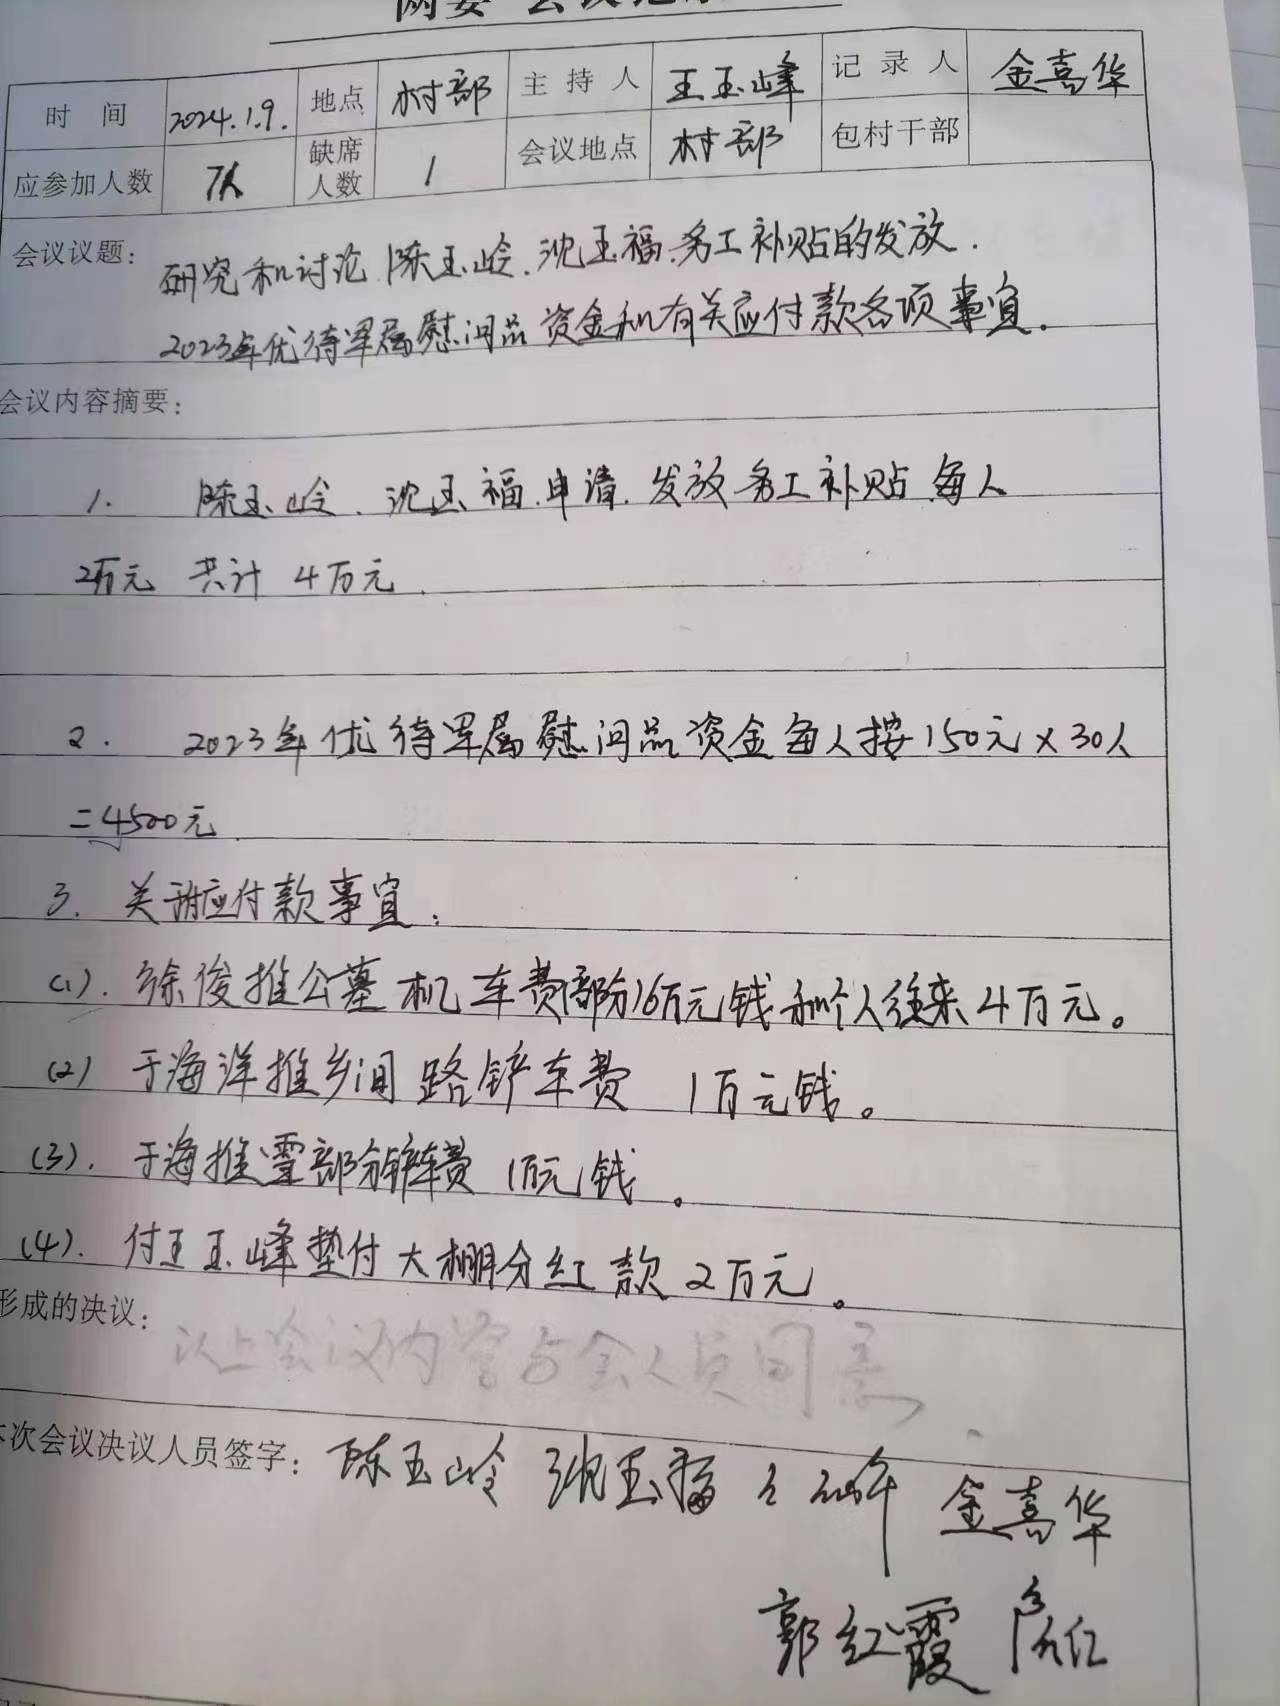 两委 会议记录
时 间 2024.1.9. 地点 村部 主 持 人 王玉峰 记 录 人 金嘉华
应参加人数 7人 缺席人数 1 会议地点 村部 包村干部
会议议题: 研究和讨论.陈玉岭.沈玉福.务工补贴的发放.
2023年优待军属慰问品资金和有关应付款各项事宜.
会议内容摘要:
1. 陈玉岭.沈玉福.申请.发放务工补贴.每人
2万元 共计 4万元.
2. 2023年优待军属慰问品资金每人按150元×30人
=4500元
3. 关于应付款事宜:
(1). 徐俊推公墓机车费部分16万元钱和个人往来4万元。
(2) 于海洋推乡间路铲车费 1万元钱。
(3). 于海推雪部分铲车费 1万元钱。
(4). 付王玉峰垫付大棚分红款2万元。
形成的决议: 以上会议内容与会人员同意
本次会议决议人员签字: 陈玉岭 沈玉福 金嘉华
郭红霞